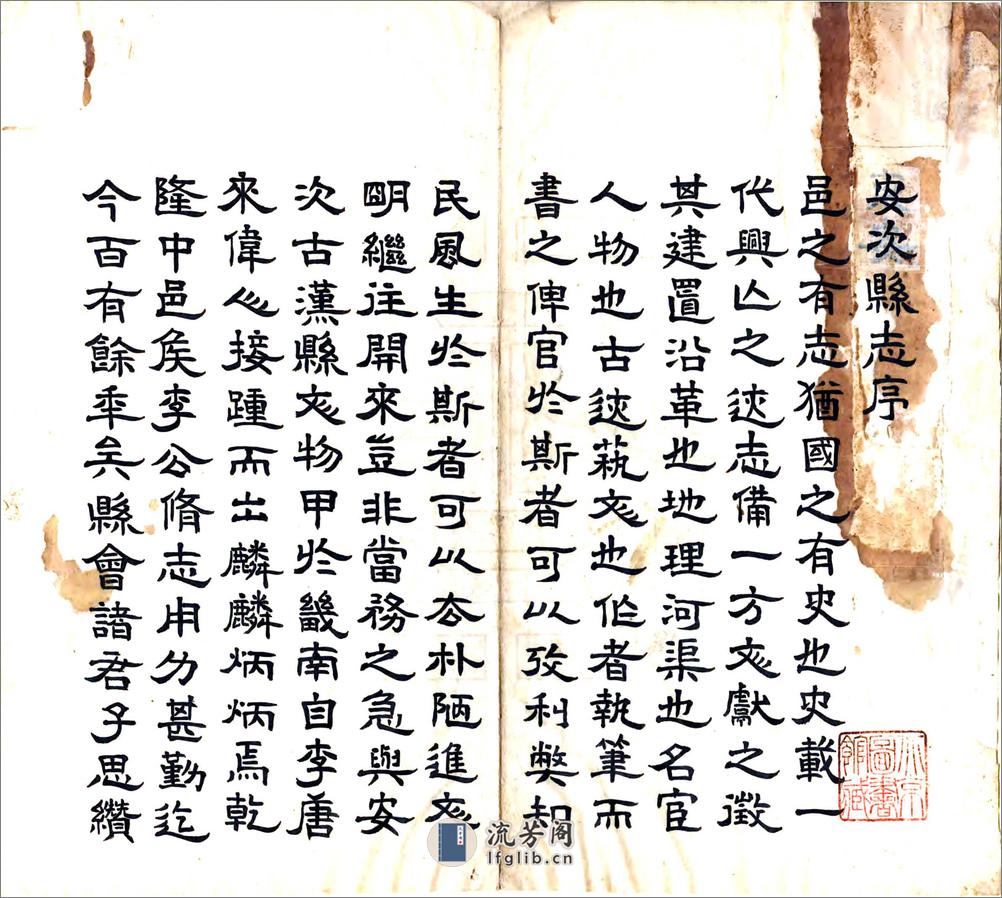 安次縣志序
邑之有志猶國之有史也史載一
代興亾之迹志備一方文獻之徵
其建置沿革也地理河渠也名宦
人物也古迹蓺文也作者執筆而
書之俾官於斯者可以攷利弊知
民風生於斯者可以去朴陋進文
明繼往開來豈非當務之急與安
次古漢縣文物甲於畿南自李唐
來偉人接踵而出麟麟炳炳焉乾
隆中邑矦李公脩志用力甚勤迄
今百有餘年矣縣會諸君子思纘
北京圖書館藏
流芳阁
lfglib.cn